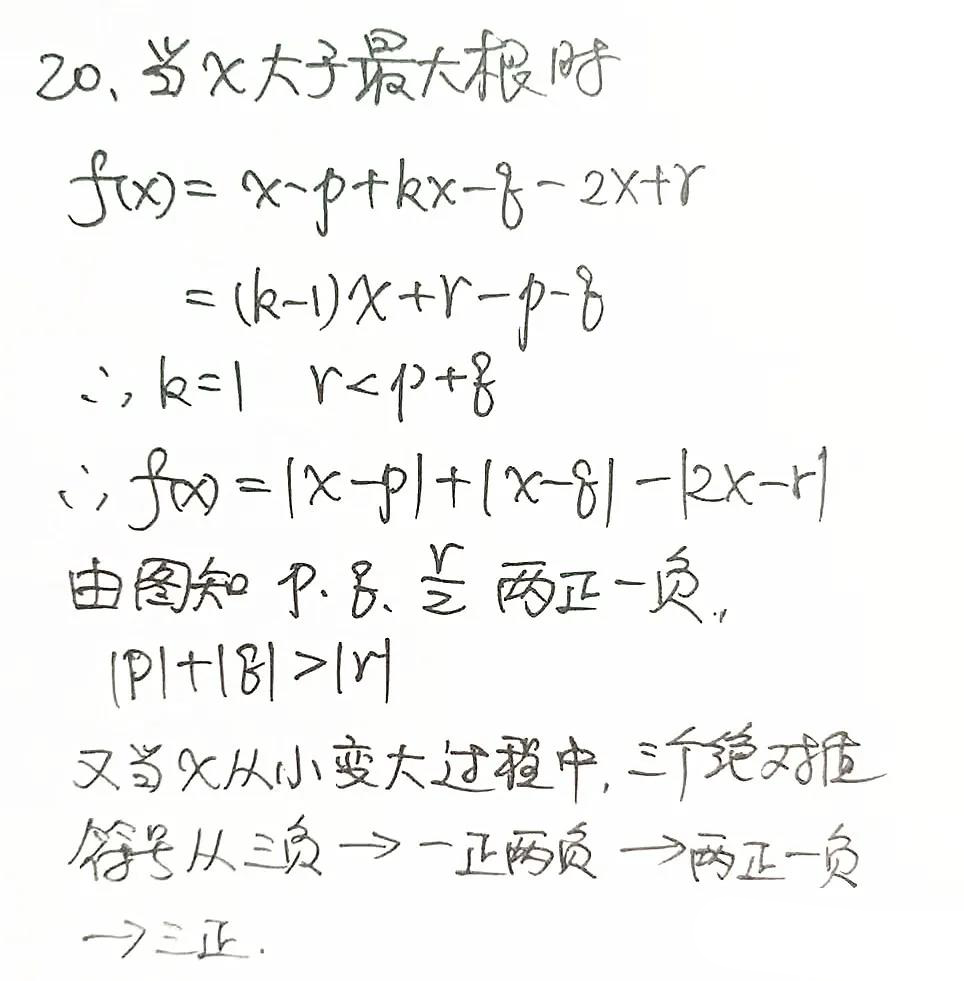 20、当x大于最大根时
f(x)= x-p+kx-q-2x+r
=(k-1)x+r-p-q
∴, k=1 r<p+q
∴, f(x)=|x-p|+|x-q|-|2x-r|
由图知 p.q、r/2 两正一负.,
|p|+|q|>|r|
又当x从小变大过程中,三个绝对值
符号从三负→一正两负→两正一负
→三正.